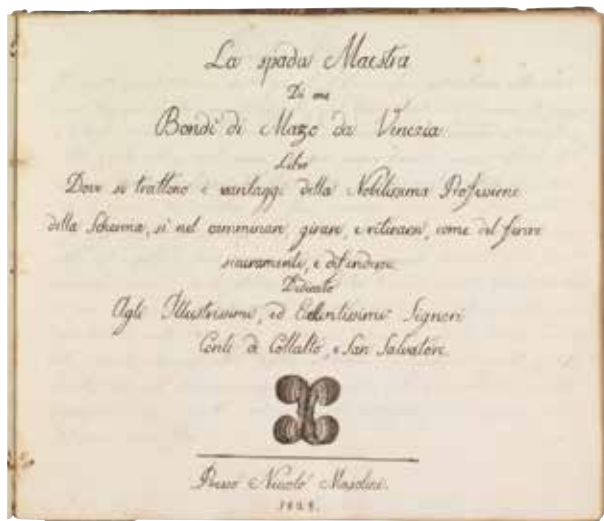 La spada Maestra
Di me
Bondì di Mazo da Venezia
Libro
Dove si trattono i vantaggi della Nobilissima Professione
della Scherma, sì nel camminare, girare, e ritirarsi, come del ferire
sicuramente, e difendersi.
Dedicato
Agli Illustrissimi, ed Eccellentissimi Signori
Conti di Collalto, e San Salvatore.
Presso Niccolò